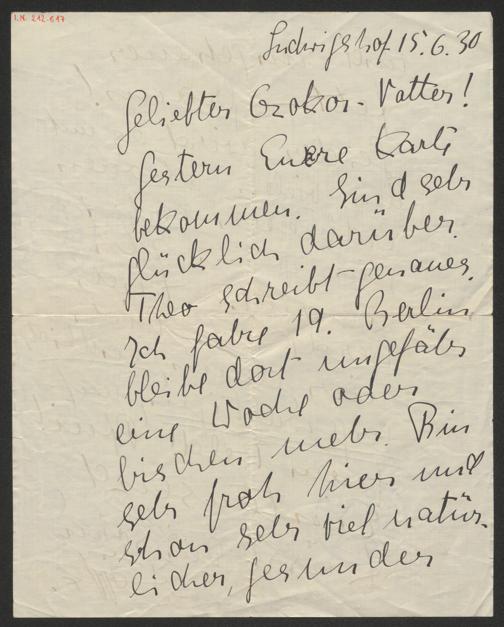 I.N. 212.617
Ludwigshof 15.6.30
Geliebter Ozokor-Vatter!
Gestern Euere Karte
bekommen. Sind sehr
glücklich darüber.
Theo schreibt genaues.
Ich fahre 19. Berlin
bleibe dort ungefähr
eine Woche oder
bischen mehr. Bin
sehr froh hier und
schon sehr viel natür-
licher, gesunder